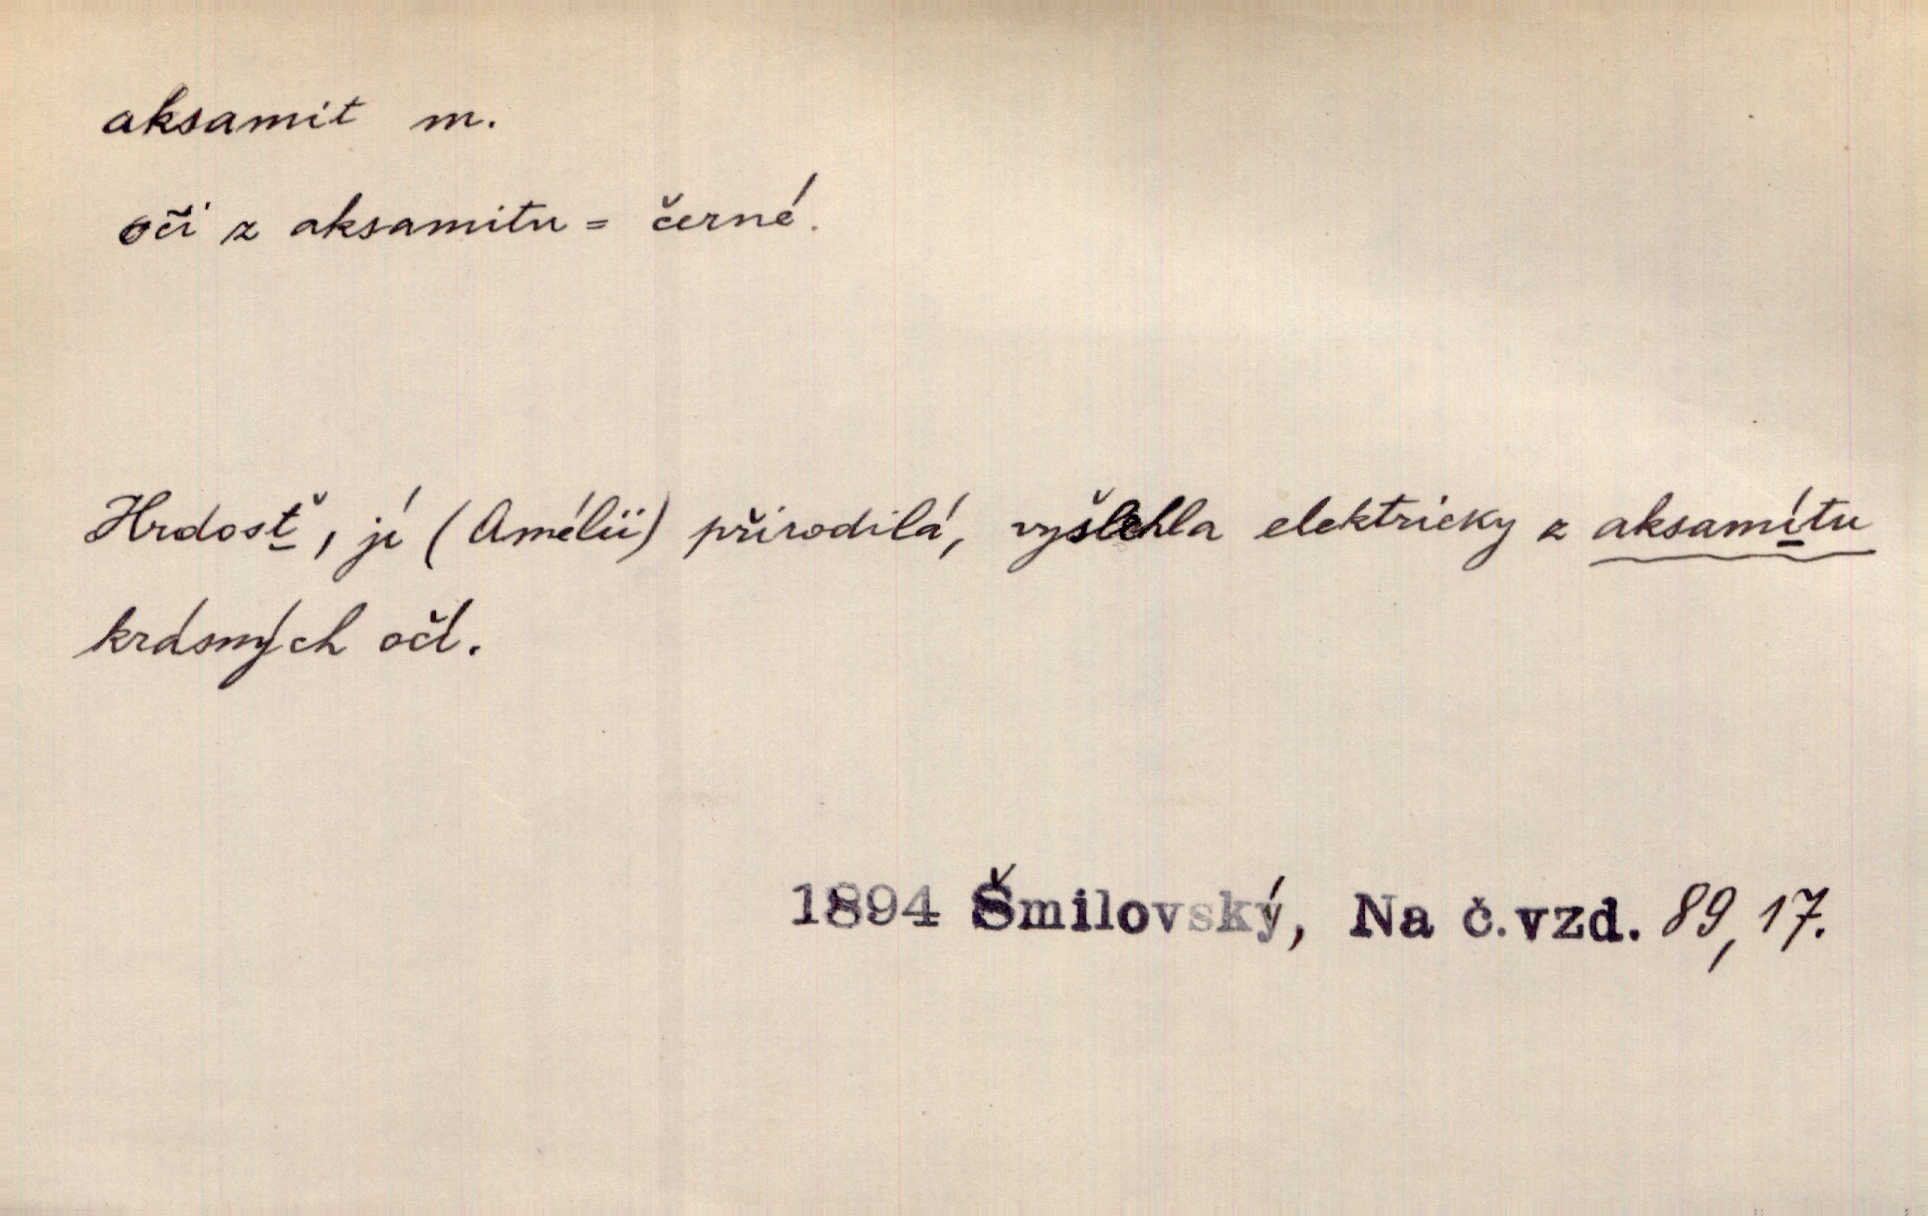 aksamit m.
oči z aksamitu = černé.
Hrdosť, jí (Amélii) přirodilá, vyšlehla elektricky z aksamítu
krásných očí.
1894 Šmilovský, Na č.vzd. 89, 17.